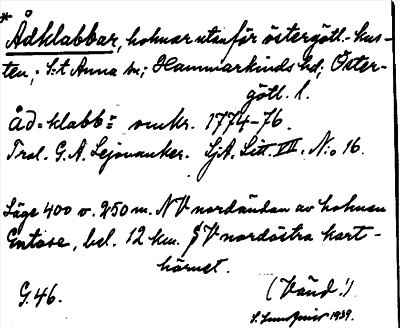 * Ådklabbar, holmar utanför östergötl. kus-
ten, S:t Anna sn; Hammarkinds hd; Öster-
götl. l.
Åd=klabb= omkr. 1774-76.
Trol. G.A. Lejonanker. SjA. Litt. VII. N:o 16.
Läge 400 o. 250 m. NV nordändan av holmen
Entose, bel. 12 km. SV nordöstra kart-
hörnet.
G.46. (Vänd!)
1939.